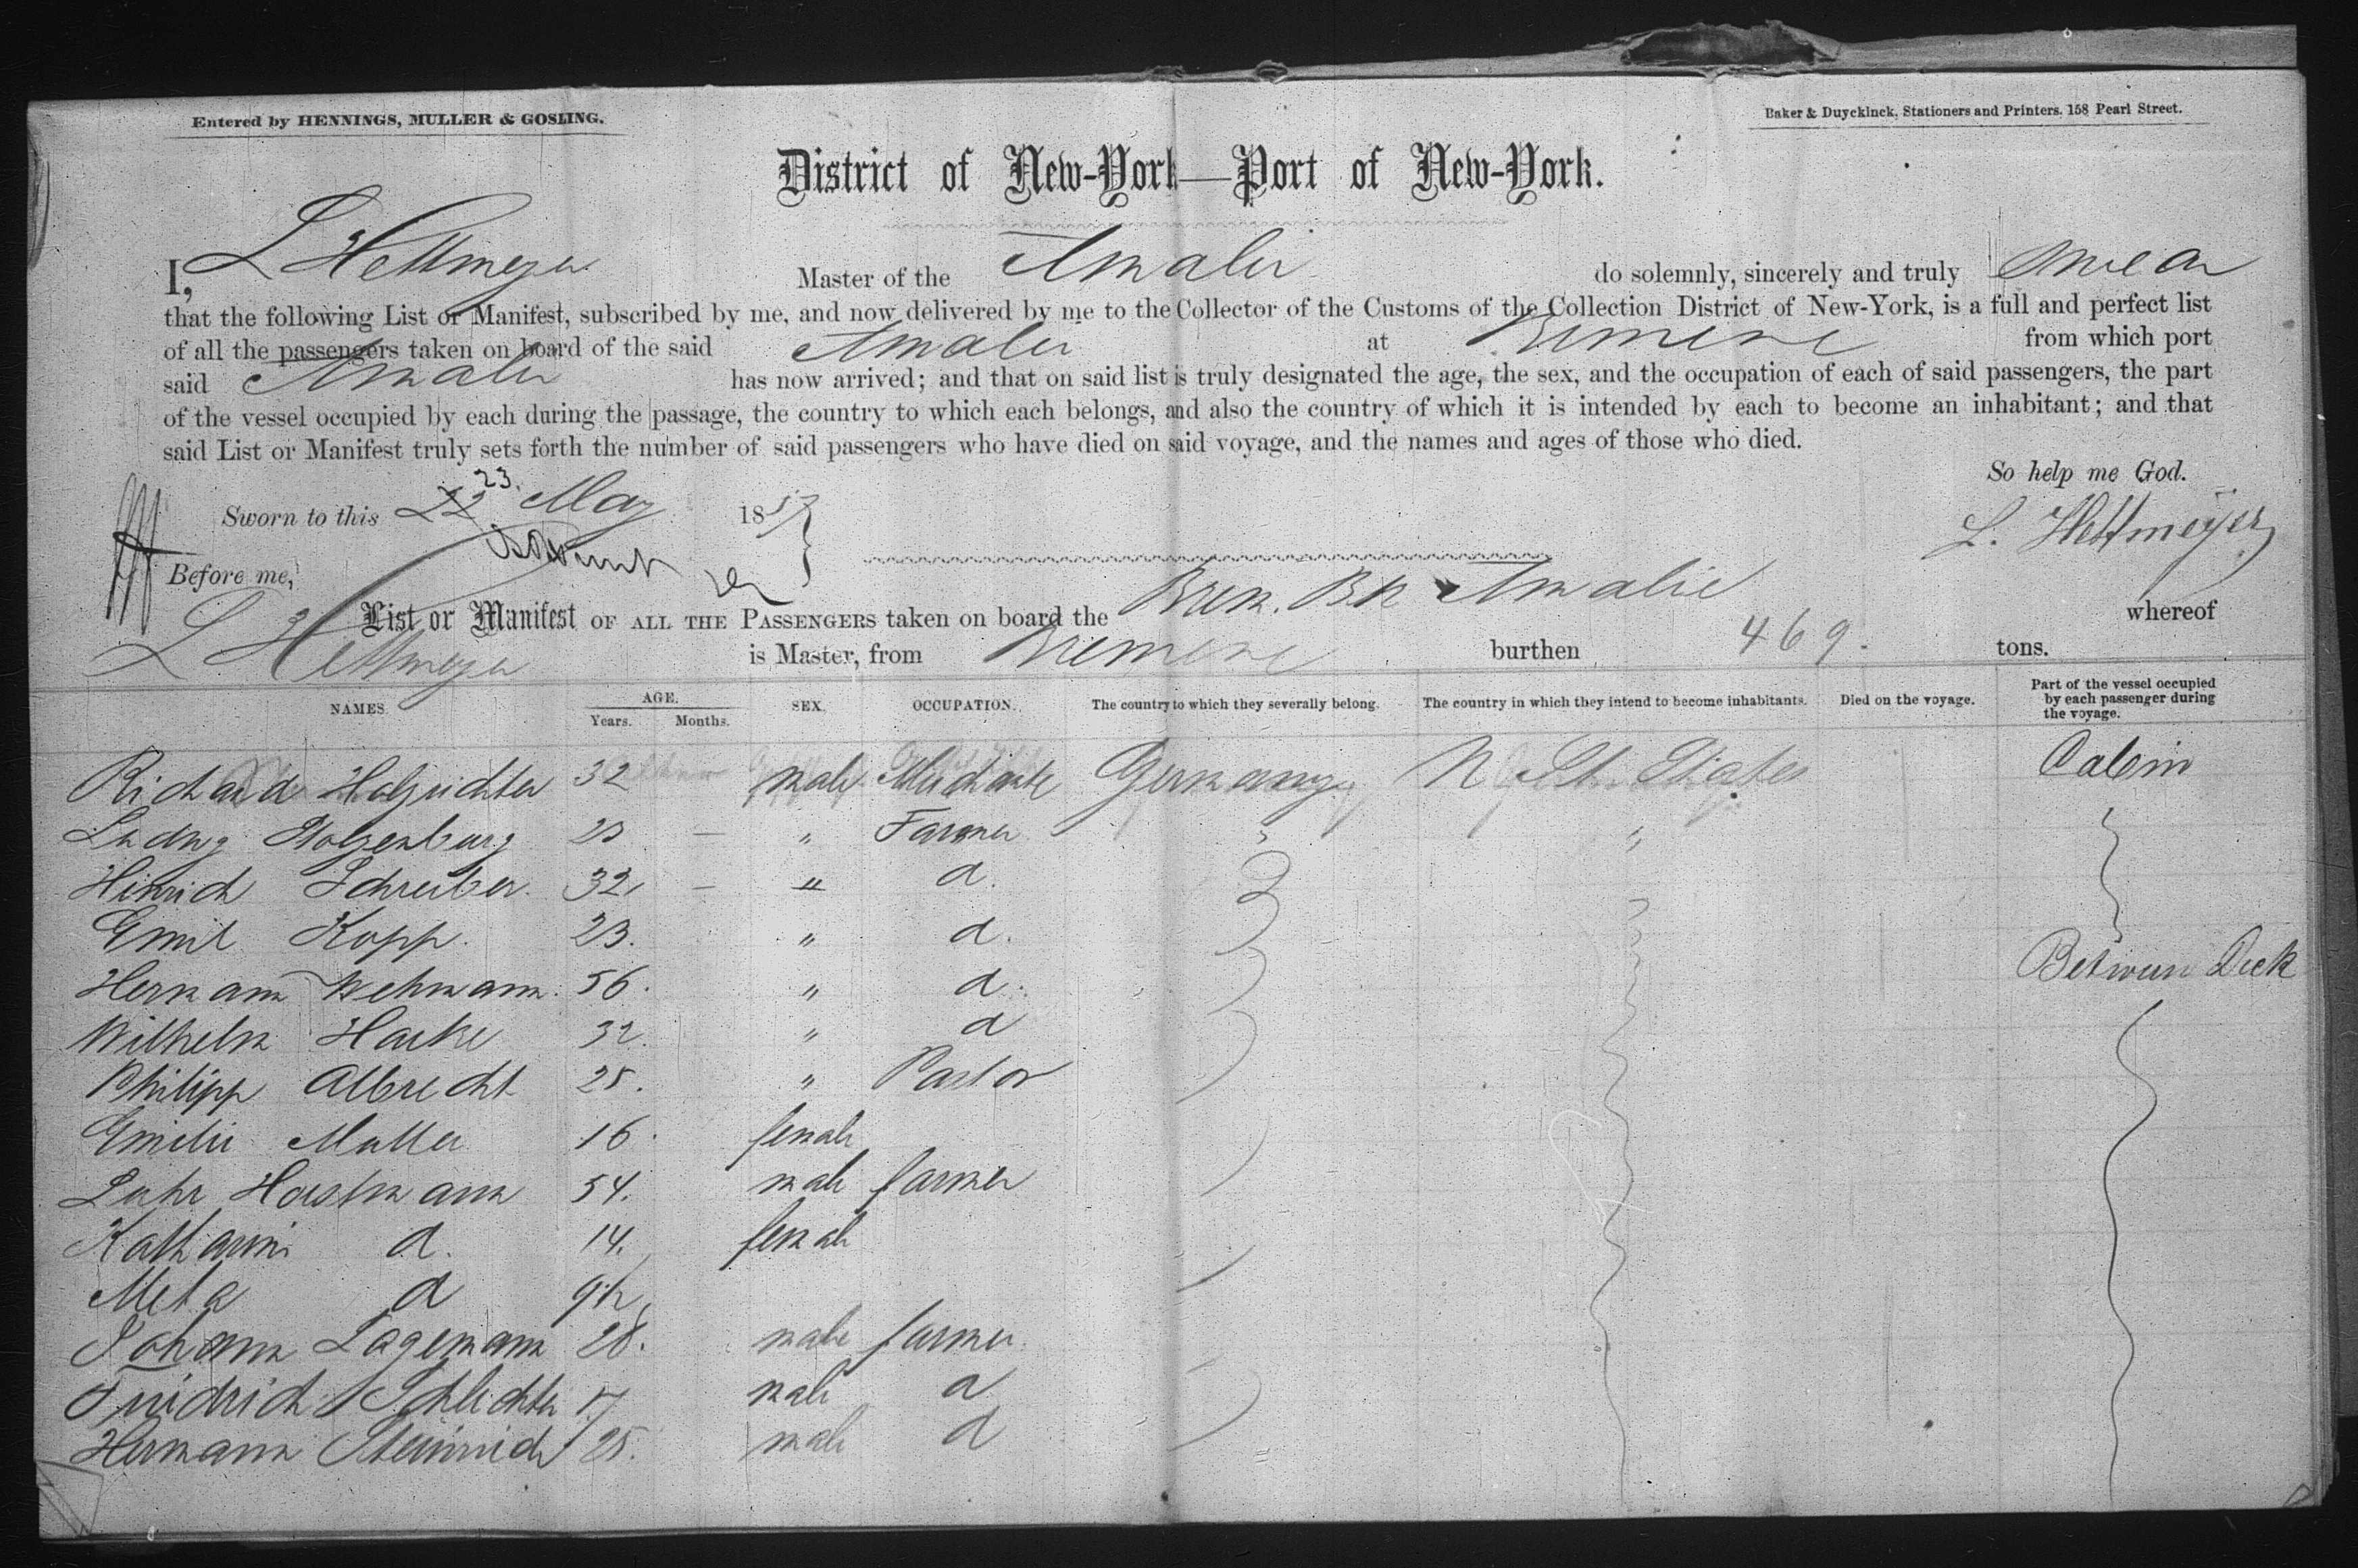 Entered by HENNINGS, MULLER & GOSLING.
Baker & Duyckinck, Stationers and Printers, 158 Pearl Street.
District of New-York—Port of New-York.
I, L Hettmeyer Master of the Amalie do solemnly, sincerely and truly swear
that the following List or Manifest, subscribed by me, and now delivered by me to the Collector of the Customs of the Collection District of New-York, is a full and perfect list
of all the passengers taken on board of the said Amalie at Bremen from which port
said Amalie has now arrived; and that on said list is truly designated the age, the sex, and the occupation of each of said passengers, the part
of the vessel occupied by each during the passage, the country to which each belongs, and also the country of which it is intended by each to become an inhabitant; and that
said List or Manifest truly sets forth the number of said passengers who have died on said voyage, and the names and ages of those who died.
So help me God.
Sworn to this 22 23. May 1857
L. Hettmeyer
Before me,
List or Manifest OF ALL THE PASSENGERS taken on board the Brem. Bk Amalie whereof
L Hettmeyer is Master, from Bremen burthen 469. tons.
NAMES. AGE. Years. Months. SEX. OCCUPATION. The country to which they severally belong. The country in which they intend to become inhabitants. Died on the voyage. Part of the vessel occupied by each passenger during the voyage.
Richard Holzrichter 32 male Germany States Cabin
Ludwig Stolzenburg — " Farmer " "
Hinrich Schreiber. 32, — " d.
Emil Kopp. 23. " d.
Hermann Wehmann. 56. " d. Between Deck
Wilhelm Hacke 32. " d
Philipp Albrecht 25. " Pastor
Emilie Muller 16. female
Luhr Horstmann 54. male farmer
Katharine d. 14. female
Meta d
Johann Lagemann 28. male farmer.
Friedrich Schlichter 17 male d
Hermann Steinrich 25. male d